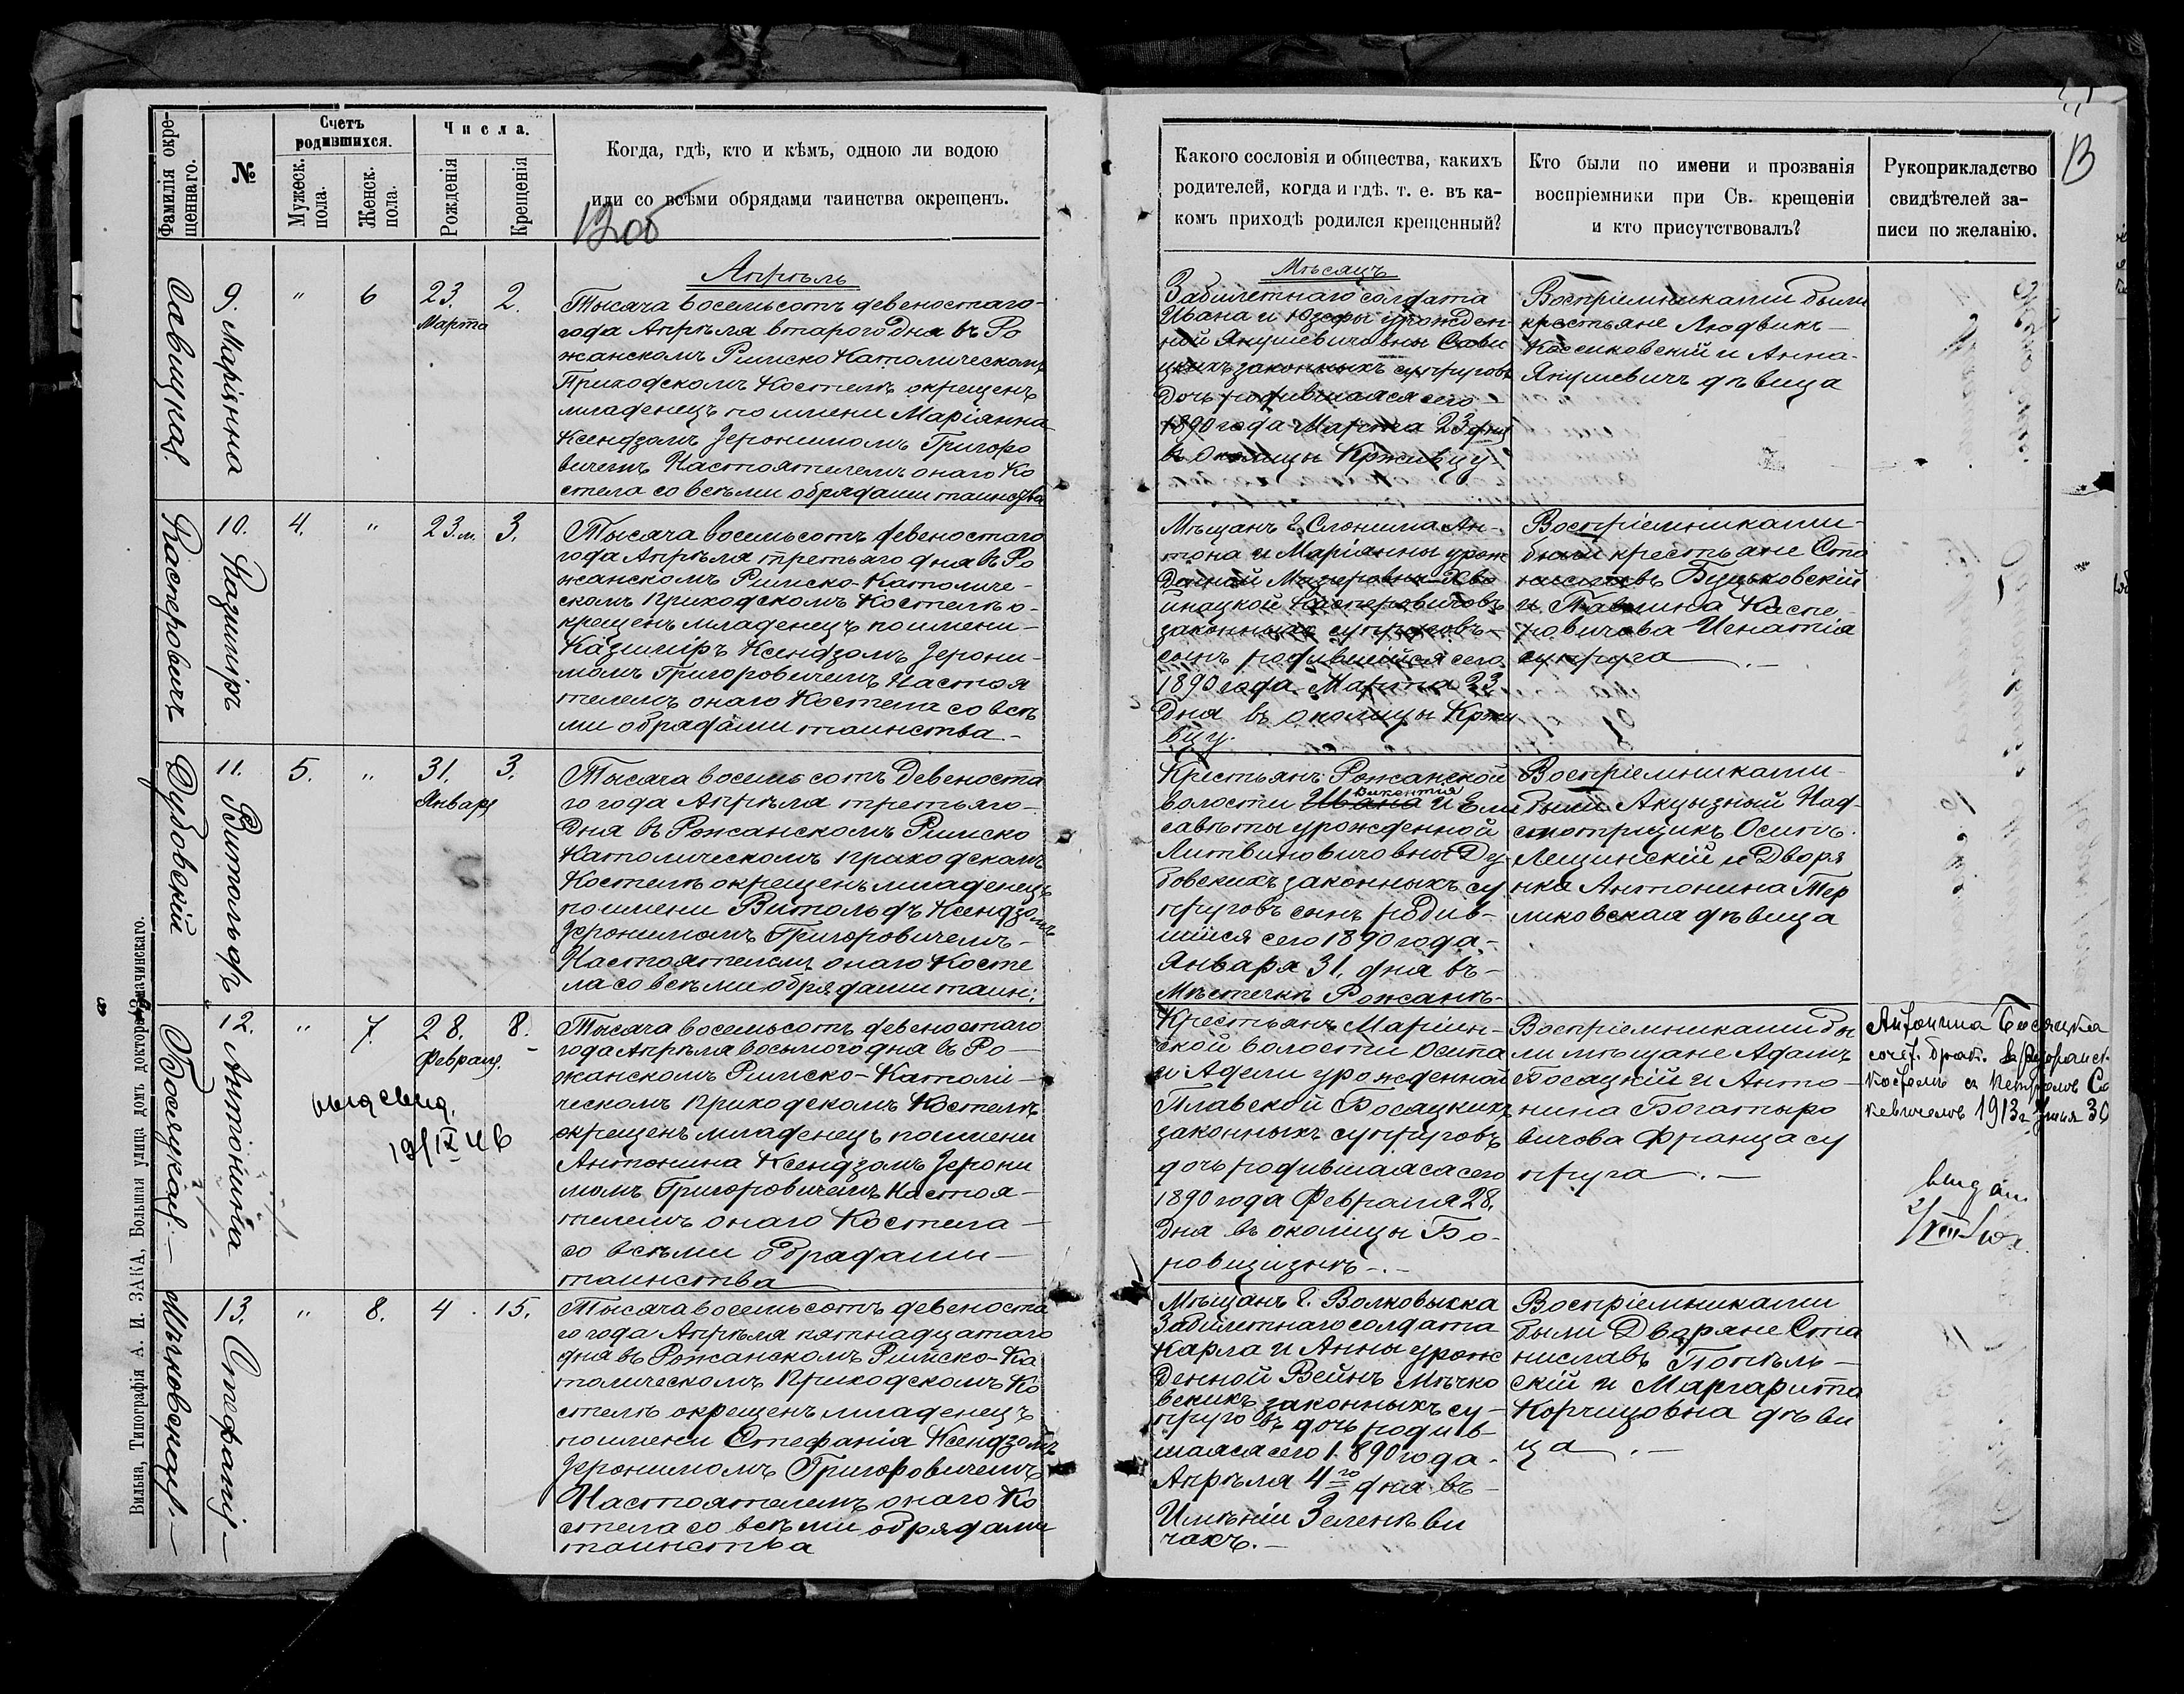 Фамилія окре-
щеннаго.
№
Счетъ
родившихся.
Мужеск.
пола.
Женск.
пола.
Числа.
Рожденія
Крещенія
Когда, гдѣ, кто и кѣмъ, одною ли водою
или со всѣми обрядами таинства окрещенъ.
12об
Савицкая.
9. Маріянна
"
6
23.
Марта
2.
Апрѣль
Тысяча восемьсотъ девеностаго-
года Апрѣля втараго дня въ Ро
жанскомъ Римско Католическомъ
Приходскомъ Костелѣ окрещенъ
младенецъ по имени Маріянна
Ксендзомъ Іеронимомъ Григоро
вичемъ Настоятелемъ онаго Ко
стела со всѣми обрядами таинства
Касперовичъ
10. Казиміръ
4.
"
23.м.
3.
Тысяча восемьсотъ девеностаго
года Апрѣля третьяго дня въ Ро
жанскомъ Римско-Католиче-
скомъ Приходскомъ Костелѣ о-
крещенъ младенецъ по имени-
Казиміръ Ксендзомъ Іерони-
момъ Григоровичемъ Настоя
телемъ онаго Костела со всѣ
ми обрядами таинства.-
Дубовскій
11. Витольдъ
5.
"
31.
Январ.
3.
Тысяча восемьсотъ девеноста
го года Апрѣля третьяго-
дня въ Рожанскомъ Римско
Католическомъ Приходскомъ
Костелѣ окрещенъ младенецъ
по имени Витольдъ Ксендзомъ
Іеронимомъ Григоровичемъ-
Настоятелемъ онаго Косте
ла со всѣми обрядами таин:
Босяцкая.-
12. Антонина
"
7.
28.
Февраля.
8.
выд свид.
19/IX 46
Тысяча восемьсотъ девеностаго
года Апрѣля восьмого дня въ Ро-
жанскомъ Римско-Католи-
ческомъ Приходскомъ Костелѣ
окрещенъ младенецъ по имени
Антонина Ксендзомъ Іерони
момъ Григоровичемъ Настоя-
телемъ онаго Костела-
со всѣми обрядами-
таинства
Мѣчковская.-
13. Стефанія-
"
8.
4.
15.
Тысяча восемьсотъ девеноста
го года Апрѣля пятнадцатаго
дня въ Рожанскомъ Римско-Ка
толическомъ Приходскомъ Ко
стелѣ окрещенъ младенецъ
по имени Стефанія Ксендзомъ
Іеронимомъ Григоровичемъ
Настоятелемъ онаго Ко
стела со всѣми обрядами
таинства
Вильна, Типографія А. И. ЗАКА, Большая улица домъ доктора Змачинскаго.
Какого сословія и общества, какихъ
родителей, когда и гдѣ. т. е. въ ка-
комъ приходѣ родился крещенный?
Кто были по имени и прозванія
воспріемники при Св. крещеніи
и кто присутствовалъ?
Рукоприкладство
свидѣтелей за-
писи по желанію.
13
Мѣсяцъ
Забилетнаго солдата
Ивана и Юзефы урожден
ной Янушевичовны Сави
цкихъ законныхъ супруговъ
дочь родившаяся сего
1890 года Марта 23 дня
въ околицы Крживцу-
Воспріемниками были
крестьяне Людвикъ-
Коссиковскій и Анна-
Янушевичъ дѣвица
Мѣщанъ г. Слонима Ан-
тона и Маріянны урож
денной
Касперовичовъ
законныхъ супруговъ-
сынъ родившійся сего
1890 года Марта 23
дня въ околицы Кржи
вцу.
Воспріемниками-
были крестьяне Ста
ниславъ Буцьковскій
и Павлина Каспе-
ровичова Игнатія
супруга.-
Крестьянъ Рожанской
волости Ивана Викентія и Ели
саветы урожденной
Литвиновичовны Ду
бовскихъ законныхъ су
пруговъ сынъ родив-
шійся сего 1890 года-
Января 31. дня въ-
Мѣстечкѣ Рожанкѣ-
Воспріемниками-
были Акцызный Над-
смотрщикъ Осипъ
Лещинскій и Дворя
нка Антонина Тер
ликовская дѣвица
Крестьянъ Маріин-
ской волости Осипа
и Адели урожденной
Плавской Босяцкихъ
законныхъ супруговъ
дочь родившаяся сего
1890 года Февраля 28.
дня въ околицы Бо-
ровицизнѣ-.-
Воспріемниками бы
ли мѣщане Адамъ
Босяцкій и Анто-
нина Богатыро
вичова Франца су
пруга.-
Антонина Босяцкая
1913 г.
выдан.
Мѣщанъ г. Волковыска
Забилетнаго солдата
Карла и Анны урож
денной Вейнъ Мѣчко
вскихъ законныхъ су-
пруговъ дочь родив-
шаяся сего 1890 года-
Апрѣля 4го дня въ-
Имѣніи Зеленѣви
чахъ.-
Воспріемниками
были Дворяне Ста
ниславъ Попѣль-
скій и Маргарита
Корчицовна дѣви
ца.-